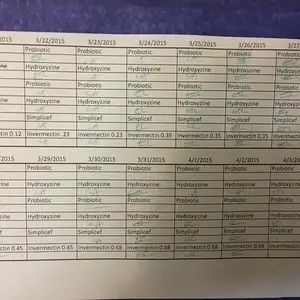 2015 3/22/2015 3/23/2015 3/24/2015 3/25/2015 3/26/2015 3/27
Probiotic Probiotic Probiotic Probiotic Probiotic Probiotic
ine Hydroxyzine Hydroxyzine Hydroxyzine Hydroxyzine Hydroxyzine Hydroxy
Probiotic Probiotic Probiotic Probiotic Probiotic Probiotic
ine Hydroxyzine Hydroxyzine Hydroxyzine Hydroxyzine Hydroxyzine Hydroxy
Simplicef Simplicef Simplicef Simplicef Simplicef Simplicef
ctin 0.12 Invermectin .23 Invermectin 0.23 Invermectin 0.35 Invermectin 0.35 Invermectin 0.35 Inverme
2015 3/29/2015 3/30/2015 3/31/2015 4/1/2015 4/2/2015 4/3/20
Probiotic Probiotic Probiotic Probiotic Probiotic Probiotic
ine Hydroxyzine Hydroxyzine Hydroxyzine Hydroxyzine Hydroxyzine Hydroxy
Probiotic Probiotic Probiotic Probiotic Probiotic Probiotic
ine Hydroxyzine Hydroxyzine Hydroxyzine Hydroxyzine Hydroxyzine Hydroxy
Simplicef Simplicef Simplicef Simplicef Simplicef Simplicef
ctin 0.45 Invermectin 0.45 Invermectin 0.68 Invermectin 0.68 Invermectin 0.68 Invermectin 0.68 Inverme